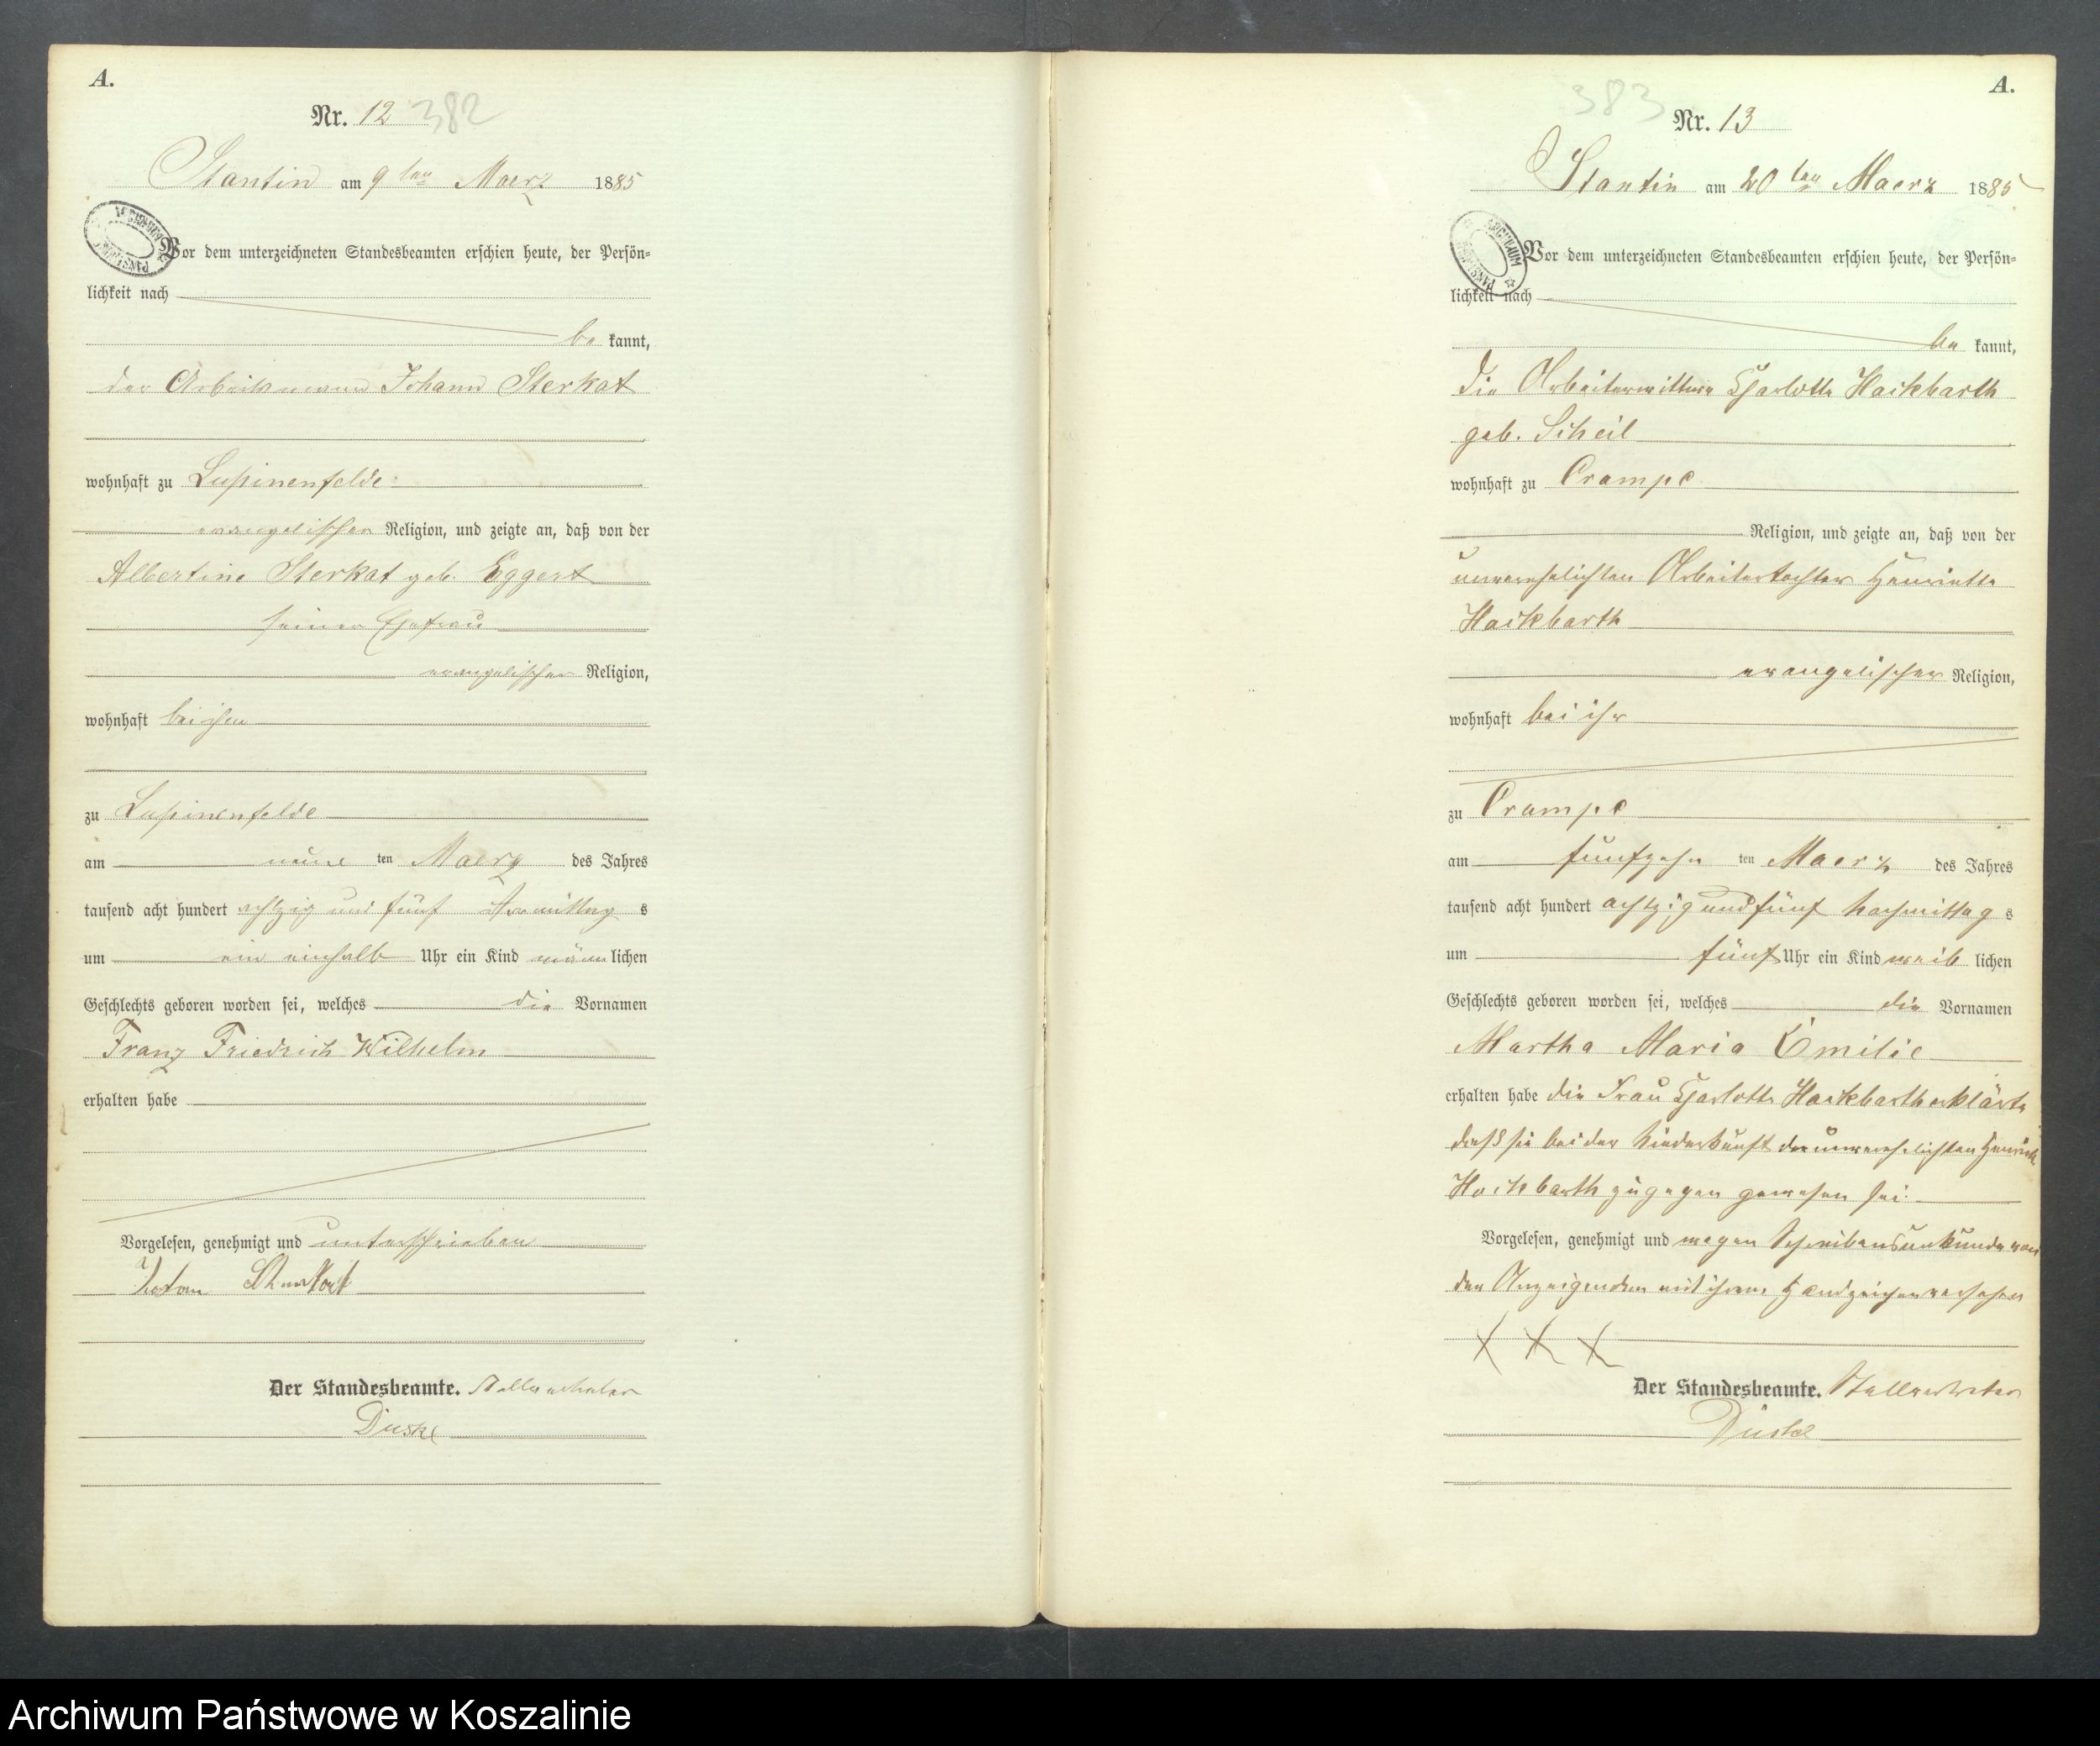 A.
Nr. 12 382
Stantin am 9ten Maerz 1885
Vor dem unterzeichneten Standesbeamten erschien heute, der Persön-
lichkeit nach
be kannt,
der Arbeitsmann Johann Sterkat
wohnhaft zu Lupinenfelde
evangelischer Religion, und zeigte an, daß von der
Albertine Sterkat geb. Eggert
seiner Ehefrau
evangelischer Religion,
wohnhaft bei ihm
zu Lupinenfelde
am neun ten Maerz des Jahres
tausend acht hundert achtzig und fünf Vormittag s
um ein einhalb Uhr ein Kind männ lichen
Geschlechts geboren worden sei, welches die Vornamen
Franz Friedrich Wilhelm
erhalten habe
Vorgelesen, genehmigt und unterschrieben
Der Standesbeamte. Stellvertreter
Duske
A.
383
Nr. 13
Stantin am 20ten Maerz 1885
ARCHIWUM
Vor dem unterzeichneten Standesbeamten erschien heute, der Persön-
lichkeit nach
be kannt,
die Arbeiterwittwe Charlotte Hackbarth
geb. Scheil
wohnhaft zu Crampe
Religion, und zeigte an, daß von der
unverehelichten Arbeitertochter Henriette
Hackbarth
evangelischer Religion,
wohnhaft bei ihr
zu Crampe
am fünfzehn ten Maerz des Jahres
tausend acht hundert achtzig und fünf Nachmittag s
um fünf Uhr ein Kind weib lichen
Geschlechts geboren worden sei, welches die Vornamen
Martha Maria Emilie
erhalten habe die Frau Charlotte Hackbarth erklärte
daß sie bei der Niederkunft der unverehelichten Henriette
Hackbarth zugegen gewesen sei.
Vorgelesen, genehmigt und wegen Schreibensunkunde von
der Anzeigenden mit ihrem Handzeichen versehen
X X X
Der Standesbeamte. Stellvertreter
Duske
Archiwum Państwowe w Koszalinie